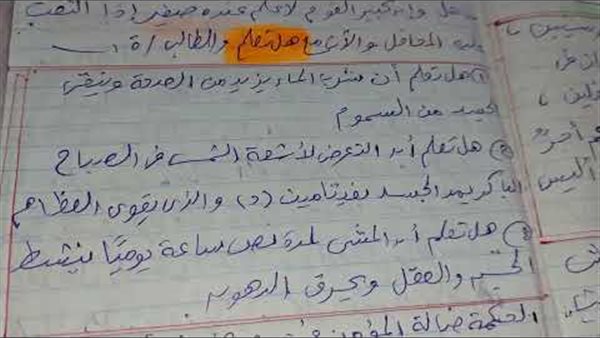 وإن كبير القوم لا علم عنده صغير إذا التفت
عليه المحافل والآن مع هل تعلم والطالب/ة
① هل تعلم أن شرب الماء يزيد من الصحة وينقى
الجسد من السموم
② هل تعلم أن التعرض لأشعة الشمس فى الصباح
الباكر يمد الجسد بفيتامين (د) والذى يقوى العظام
③ هل تعلم أن المشى لمدة نصف ساعة يوميًا ينشط
الجسم والعقل ويحرق الدهون
الحكمة ضالة المؤمن